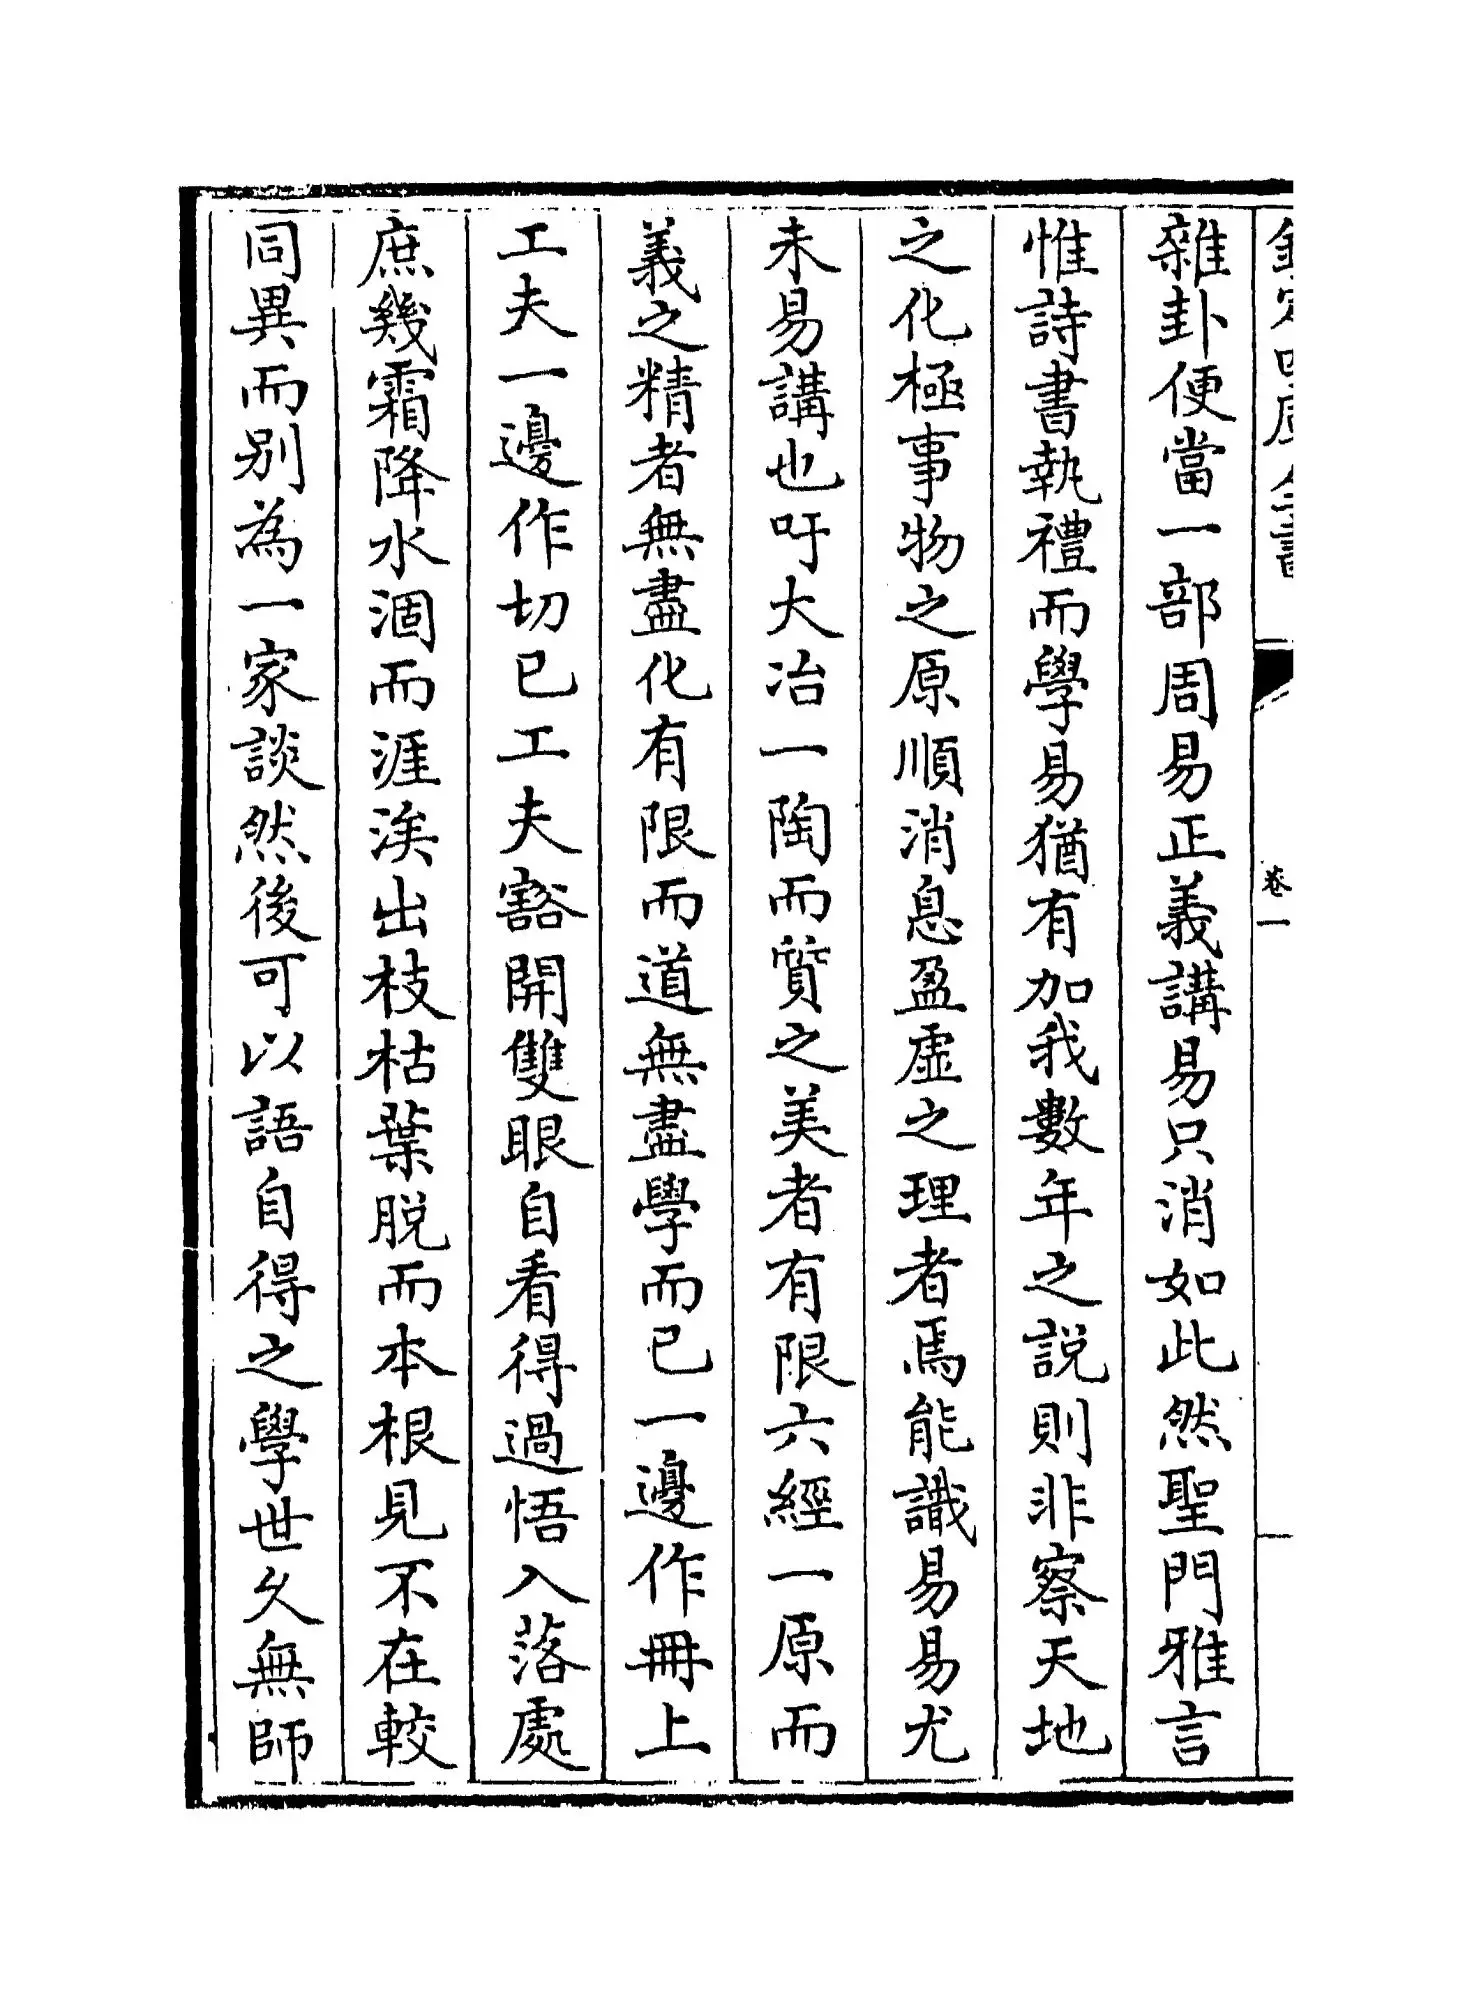 欽定四庫全書
卷一
雜卦便當一部周易正義講易只消如此然聖門雅言
惟詩書執禮而學易猶有加我數年之說則非察天地
之化極事物之原順消息盈虛之理者焉能識易易尤
未易講也吁大冶一陶而質之美者有限六經一原而
義之精者無盡化有限而道無盡學而已一邊作冊上
工夫一邊作切已工夫豁開雙眼自看得過悟入落處
庶幾霜降水涸而涯涘出枝枯葉脫而本根見不在較
同異而別為一家談然後可以語自得之學世久無師